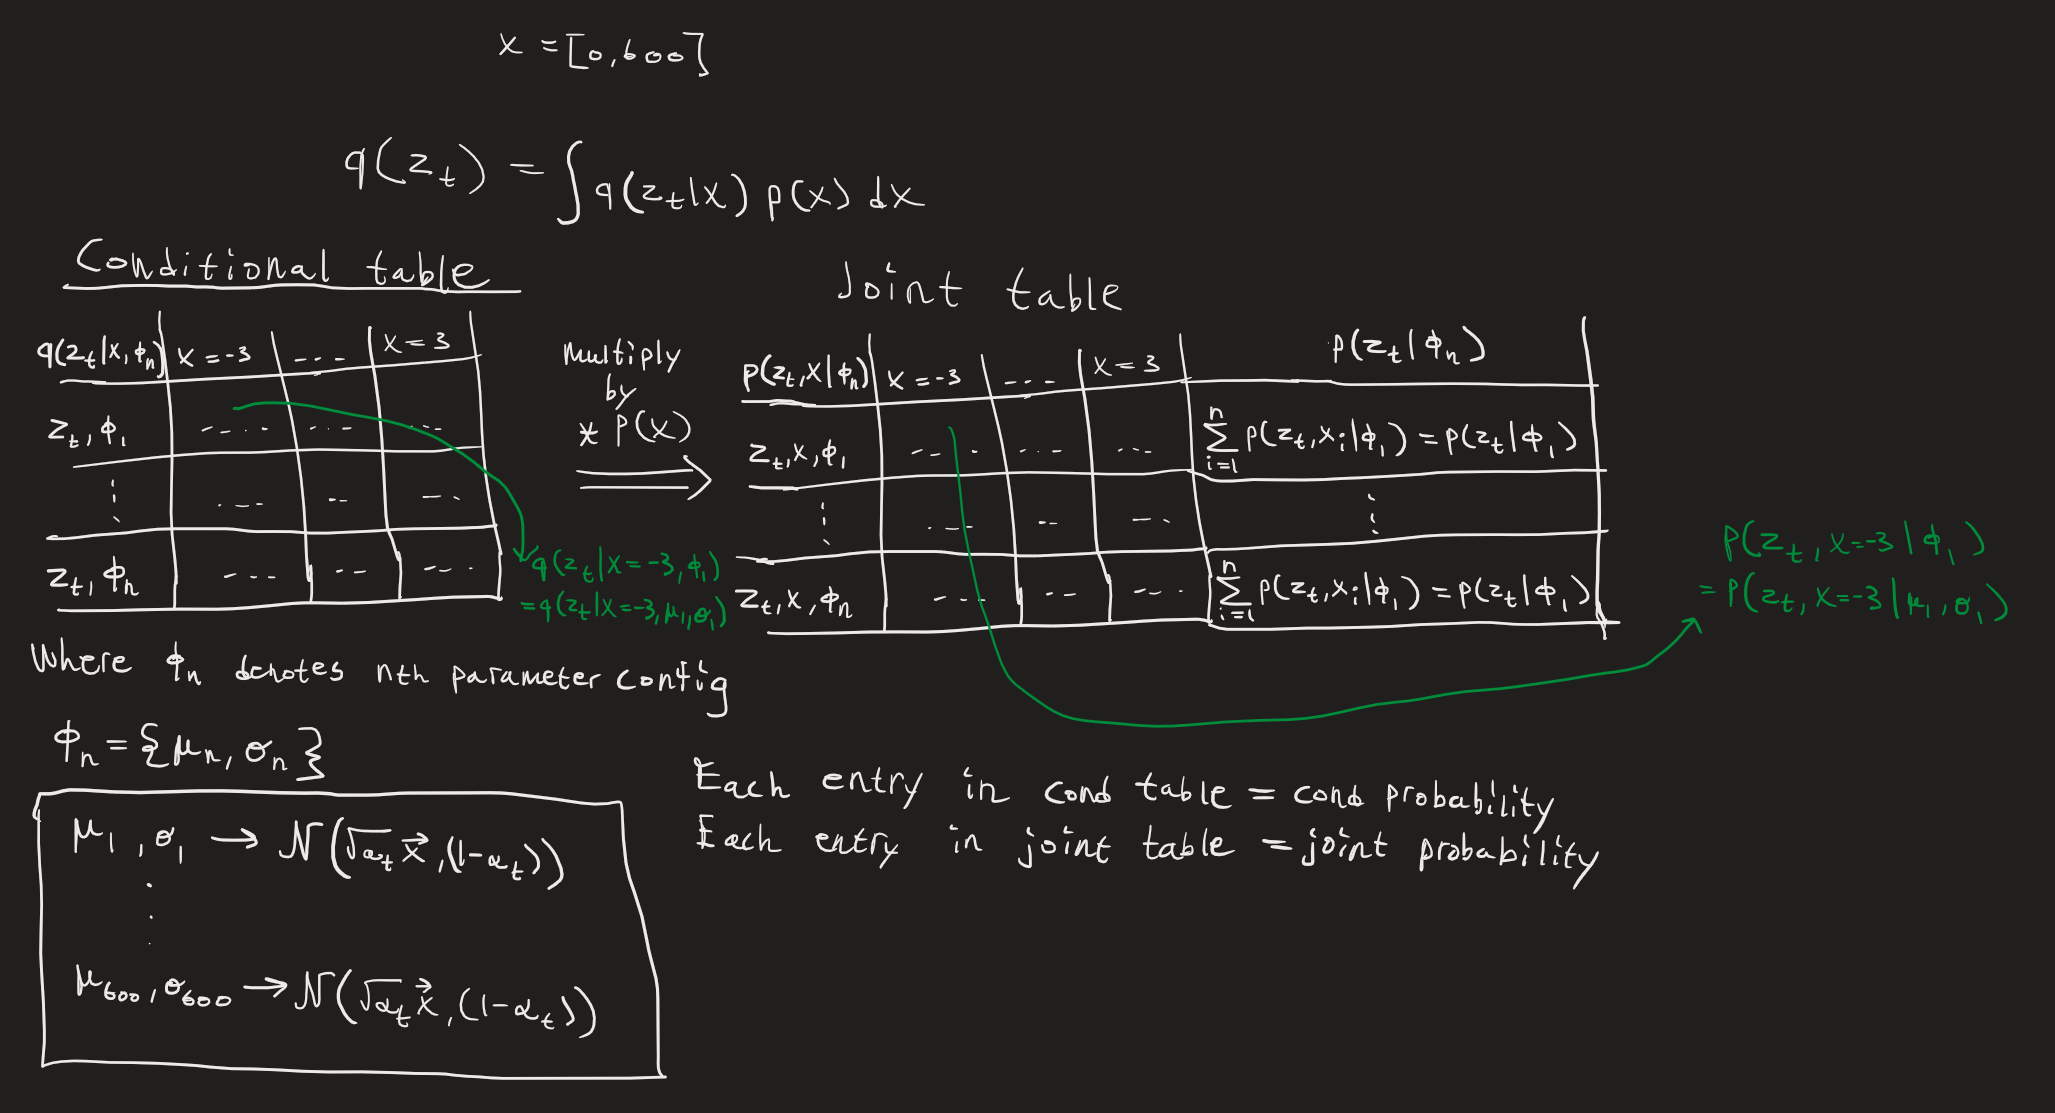 x = [0,600]
q(z_t) = ∫ q(z_t|x) p(x) dx
Conditional table
q(z_t|x, ϕ_n) x = -3 ---- x = 3
z_t, ϕ_1 ---- ---- ---
⋮ ---- -- ---
z_t, ϕ_n ---- -- ---
Multiply
by
* P(x)
⟹
q(z_t|x=-3, ϕ_1)
= q(z_t|x=-3, μ_1, σ_1)
Joint table
p(z_t, x|ϕ_n) x = -3 ---- x = 3 p(z_t|ϕ_n)
z_t, x, ϕ_1 ---- --- --- ∑_{i=1}^{n} p(z_t, x_i|ϕ_1) = p(z_t|ϕ_1)
⋮ ---- -- --- ⋮
z_t, x, ϕ_n --- -- --- ∑_{i=1}^{n} p(z_t, x_i|ϕ_1) = p(z_t|ϕ_1)
P(z_t, x=-3|ϕ_1)
= P(z_t, x=-3|μ_1, σ_1)
Where ϕ_n denotes nth parameter config
ϕ_n = {μ_n, σ_n}
μ_1, σ_1 → N(√α_t x⃗, (1-α_t))
⋮
μ_600, σ_600 → N(√α_t x⃗, (1-α_t))
Each entry in cond table = cond probability
Each entry in joint table = joint probability